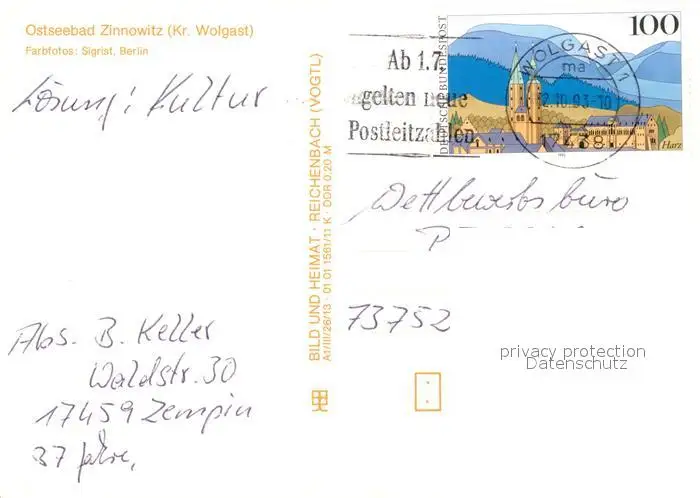 Ostseebad Zinnowitz (Kr. Wolgast)
Farbfotos: Sigrist, Berlin
Lösung: Kultur
Abs. B. Keller
Waldstr. 30
17459 Zempin
37 Jahre,
BILD UND HEIMAT · REICHENBACH (VOGTL)
A1/III/26/13 · 01 01 1561/11 K · DDR 0,20 M
Ab 1.7.
gelten neue
Postleitzahlen
DEUTSCHE BUNDESPOST
100
Harz
WOLGAST 1
ma
Wettbewerbsbüro
73752
privacy protection
Datenschutz